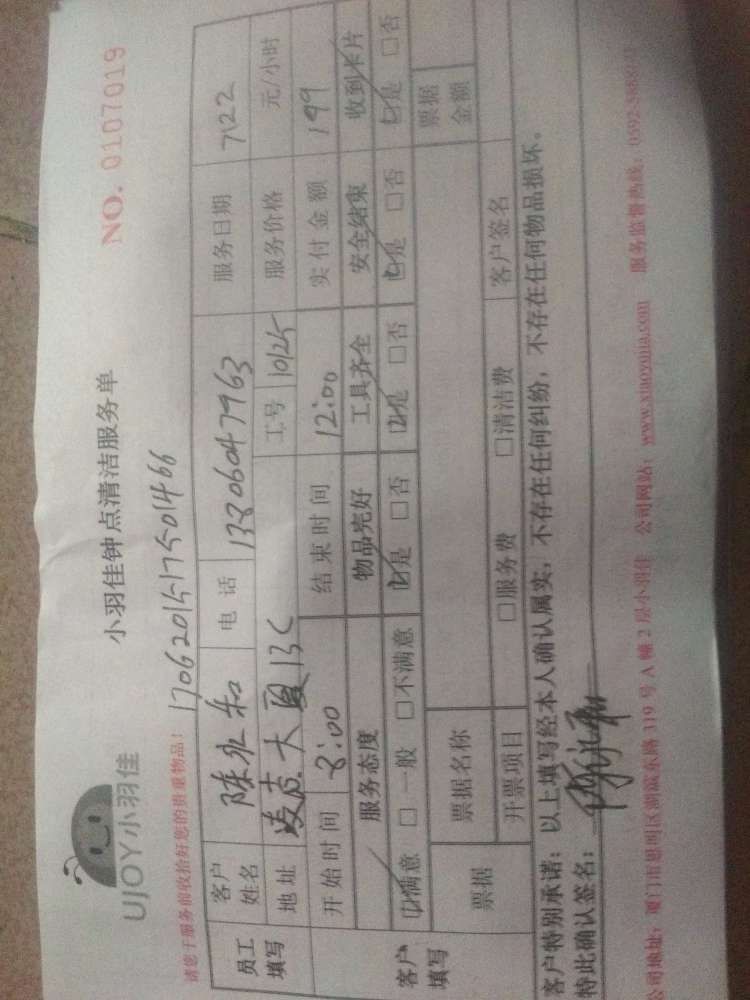 UJOY小羽佳
小羽佳钟点清洁服务单
NO. 0107019
请您于服务前收拾好您的贵重物品!
1706201517501466
员工填写 客户姓名 陈永和 电话 13806047963 服务日期 7.22
地址 大厦13C 工号 10125 服务价格 元/小时
开始时间 8:00 结束时间 12:00 实付金额 199
客户填写 服务态度 物品完好 工具齐全 安全结束 收到卡片
☑满意 □一般 □不满意 ☑是 □否 ☑是 □否 ☑是 □否 ☑是 □否
票据 票据名称 票据金额
开票项目 □服务费 □清洁费 客户签名
客户特别承诺:以上填写经本人确认属实,不存在任何纠纷,不存在任何物品损坏。
特此确认签名:
公司地址:厦门市思明区湖滨东路319号A幢2层小羽佳 公司网站:www.xiaoyujia.com 服务监督热线:0592-